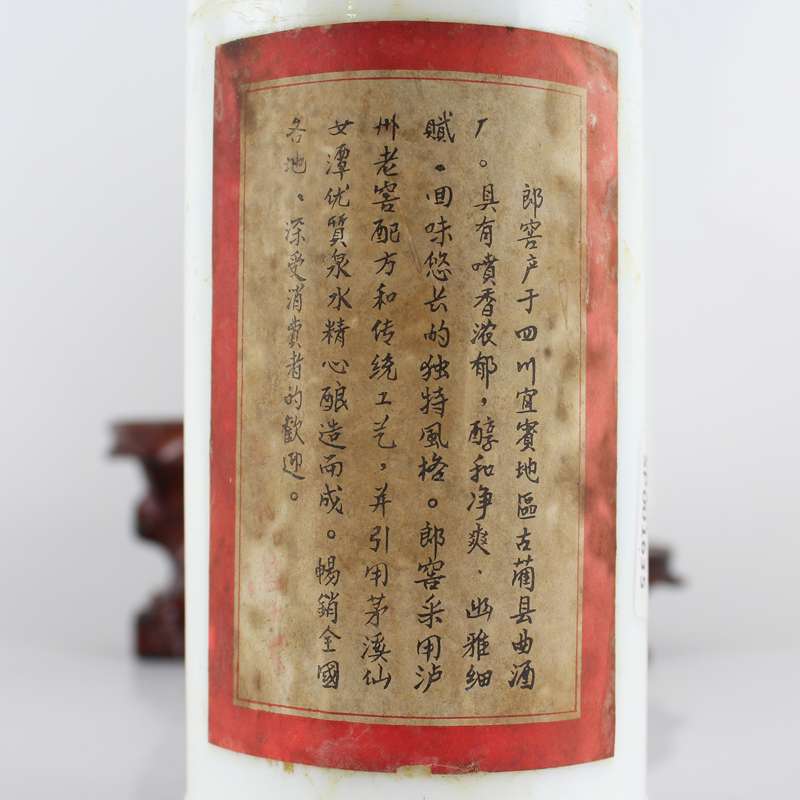 郎窖产于四川宜賓地區古藺县曲酒
厂。具有噴香浓郁，醇和净爽．幽雅细
腻。回味悠长的独特風格。郎窖采用泸
州老窖配方和传统工艺，并引用茅溪仙
女潭优質泉水精心酿造而成。暢銷全國
各地、深受消費者的歡迎。